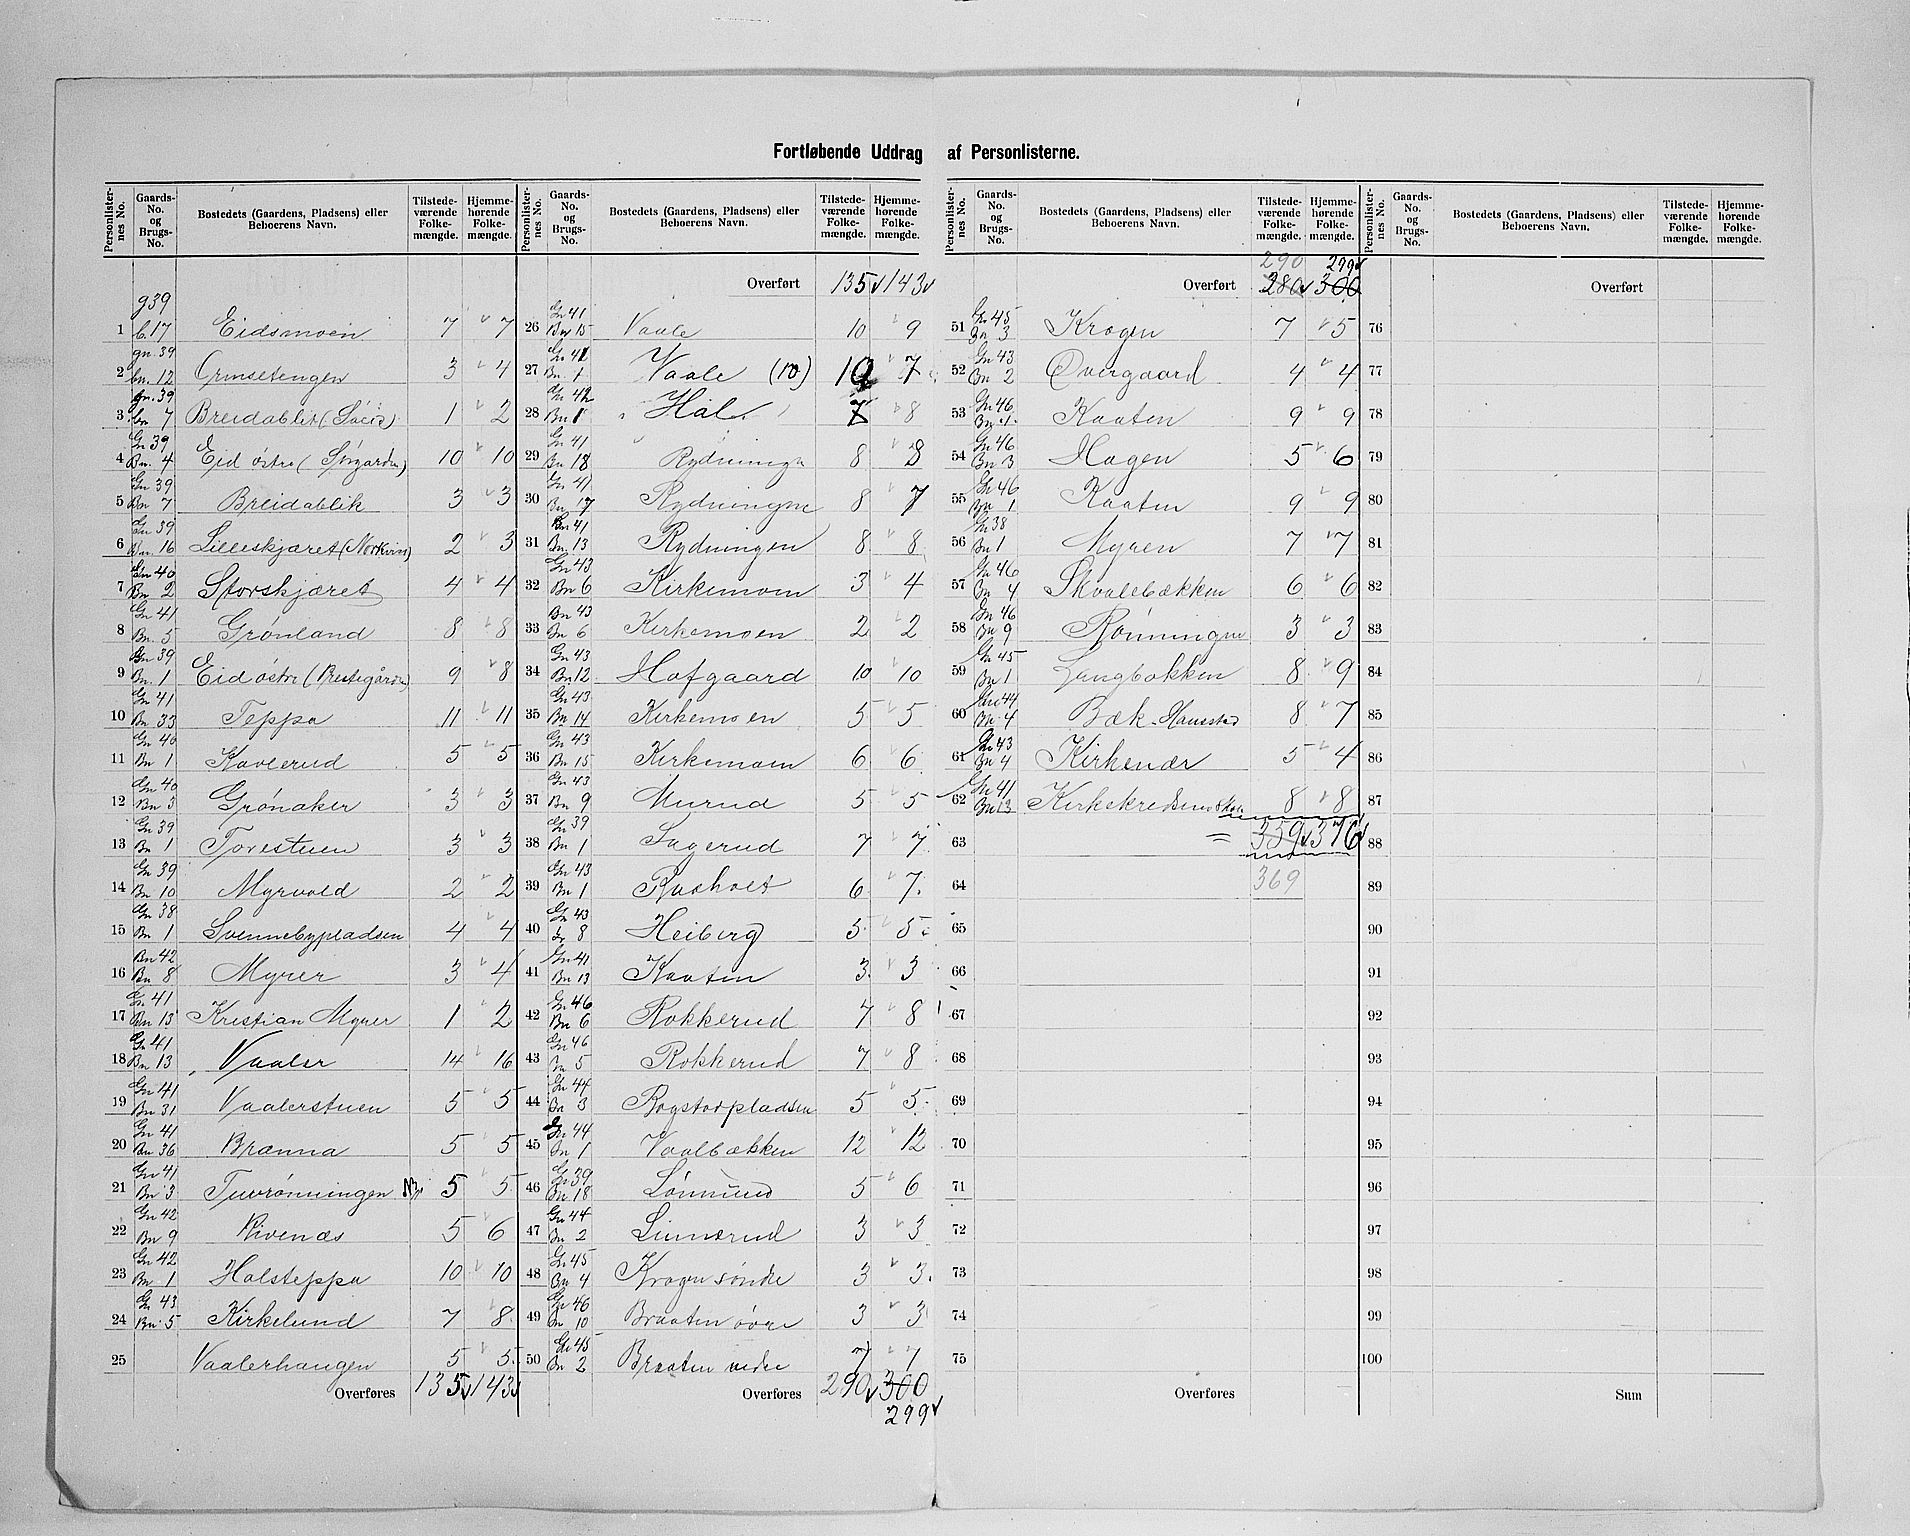 Fortløbende Uddrag af Personlisterne.
Personlister-nes No. Gaards-No. og Brugs-No. Bostedets (Gaardens, Pladsens) eller Beboerens Navn. Tilstede-værende Folke-mængde. Hjemme-hørende Folke-mængde.
g 39
1 b. 17 Eidsmoen 7 7
gn. 39
2 bn. 12 Ormsetengen 3 4
gn. 39
3 bn 7 Breidablik 1 2
Gn 39
4 Bn. 4 Eid östre 10 10
Gn 39
5 Bn 7 Breidablik 3 3
Gn 39
6 Bn. 16 Lilleskjæret 2 3
Gn 40
7 Bn 2 Storskjæret 4 4
Gn 41
8 Bn. 5 Grønland 8 8
Gn 39
9 Bn. 1 Eid östre (Prestegården) 9 8
Gn 41
10 Bn. 33 Teppa 11 11
Gn 40
11 Bn 1 Kavlerud 5 5
Gn 40
12 Bn 3 Grønaker 3 3
Gn 39
13 Bn 1 Torestuen 3 3
Gn 39
14 Bn 10 Myrvold 2 2
Gn 38
15 Bn 1 Svennebypladsen 4 4
Bn 42
16 Bn 8 Myrer 3 4
Gn 41
17 Bn 13 Kristian Myrer 1 2
Gn 41
18 Bn 13 Vaaler 14 16
Gn 41
19 Bn 31 Vaalerstuen 5 5
Gn 41
20 Bn 36 Brænna 5 5
Gn 41
21 Bn 3 Tuvrønningen 5 5
Gn 42
22 Bn 9 Rivenæs 5 6
Gn 42
23 Bn 1 Halsteppa 10 10
Gn 43
24 Bn. 5 Kirkelund 7 8
25 Vaalerhaugen 5 5
Overføres 135 143
Personlister-nes No. Gaards-No. og Brugs-No. Bostedets (Gaardens, Pladsens) eller Beboerens Navn. Tilstede-værende Folke-mængde. Hjemme-hørende Folke-mængde.
Overført 135 143
Gn 41
26 Bn 15 Vaale 10 9
Gn 41
27 Bn. 1 Vaale (10) 10 7
Gn 42
28 Bn 1 Hal 7 8
Gn 41
29 Bn 18 Rydningen 8 8
Gn 41
30 Bn 17 Rydningen 8 7
Bn 41
31 Bn. 13 Rydningen 8 8
Gn 43
32 Bn 6 Kirkemoen 3 4
Bn 43
33 Bn 6 Kirkemoen 2 2
Gn 43
34 Bn 12 Hofgaard 10 10
Gn 43
35 Bn 14 Kirkemoen 5 5
Gn 43
36 Bn 15 Kirkemoen 6 6
Gn 43
37 Bn 9 Murud 5 5
Gn 39
38 Bn 1 Sagerud 7 7
Gn 43
39 Bn 1 Rasholt 6 7
Gn 43
40 8 Heiberg 5 5
Gn 41
41 Bn 13 Kaaten 3 3
Gn 46
42 Bn 6 Rokkerud 7 8
Gn 46
43 5 Rokkerud 7 8
Gn 44
44 Bn 3 Rogstadpladsen 5 5
Gn 44
45 Bn 1 Vaalbækken 12 12
Gn 39
46 Bn 18 Lønnund 5 6
Gn 44
47 Bn 2 Linnerud 3 3
Gn 45
48 Bn 4 Krogen söndre 3 3
Gn 46
49 Bn 10 Braaten övre 3 3
Gn 45
50 Bn 2 Braaten nedre 7 7
Overføres 290 300
299
Personlister-nes No. Gaards-No. og Brugs-No. Bostedets (Gaardens, Pladsens) eller Beboerens Navn. Tilstede-værende Folke-mængde. Hjemme-hørende Folke-mængde.
290 299
Overført 280 300
Gn 45
51 Bn 3 Krogen 7 5
Gn 43
52 Bn 2 Overgaard 4 4
Gn 46
53 Bn 1 Kaaten 9 9
Gn 46
54 Bn 3 Hagen 5 6
Gn 46
55 Bn 1 Kaaten 9 9
Gn 38
56 Bn 1 Myren 7 7
Gn 46
57 Bn 4 Skvalebækken 6 6
Gn 46
58 Bn 9 Rønningen 3 3
Gn 45
59 Bn 1 Langbakken 8 9
Gn 44
60 Bn 4 Bæk 8 7
Gn 43
61 Bn 4 Kirkenær 5 4
Gn 41
62 Bn 13 Kirkekredsens 8 8
63 = 359 376
64 369
65
66
67
68
69
70
71
72
73
74
75
Overføres
Personlister-nes No. Gaards-No. og Brugs-No. Bostedets (Gaardens, Pladsens) eller Beboerens Navn. Tilstede-værende Folke-mængde. Hjemme-hørende Folke-mængde.
Overført
76
77
78
79
80
81
82
83
84
85
86
87
88
89
90
91
92
93
94
95
96
97
98
99
100
Sum